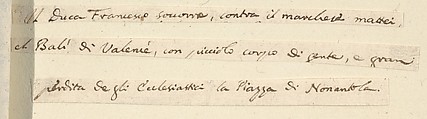 Il Duca Francesco soccorre, contra il marchese mattei,
el Balì di Valensé, con picciolo corpo di gente, e gran
perdita degli Ecclesiastici la Piazza di Nonantola.